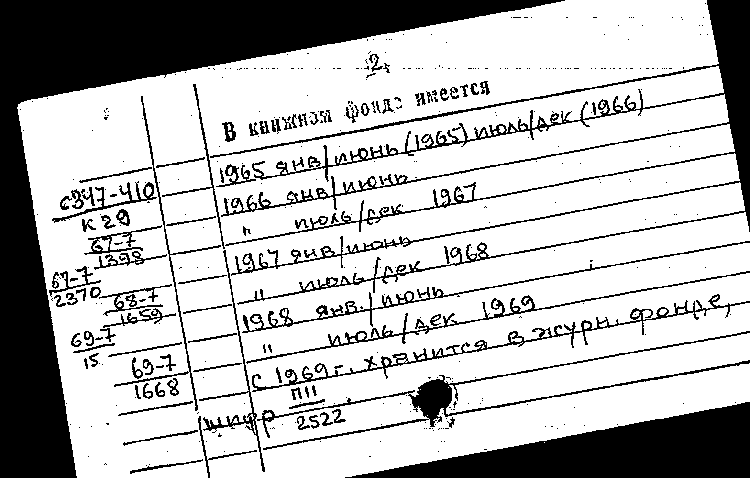 2.
В книжном фонде имеется
1965 янв/июнь (1965) июль/дек (1966)
с347-410
К 29
1966 янв/июнь
67-7
1398
" июль/дек 1967
67-7
2370
1967 янв/июнь
68-7
1659
" июль/дек 1968
69-7
15
1968 янв./июнь
" июль/дек 1969
69-7
1668
с 1969 г. хранится в журн. фонде,
шифр П11
2522.